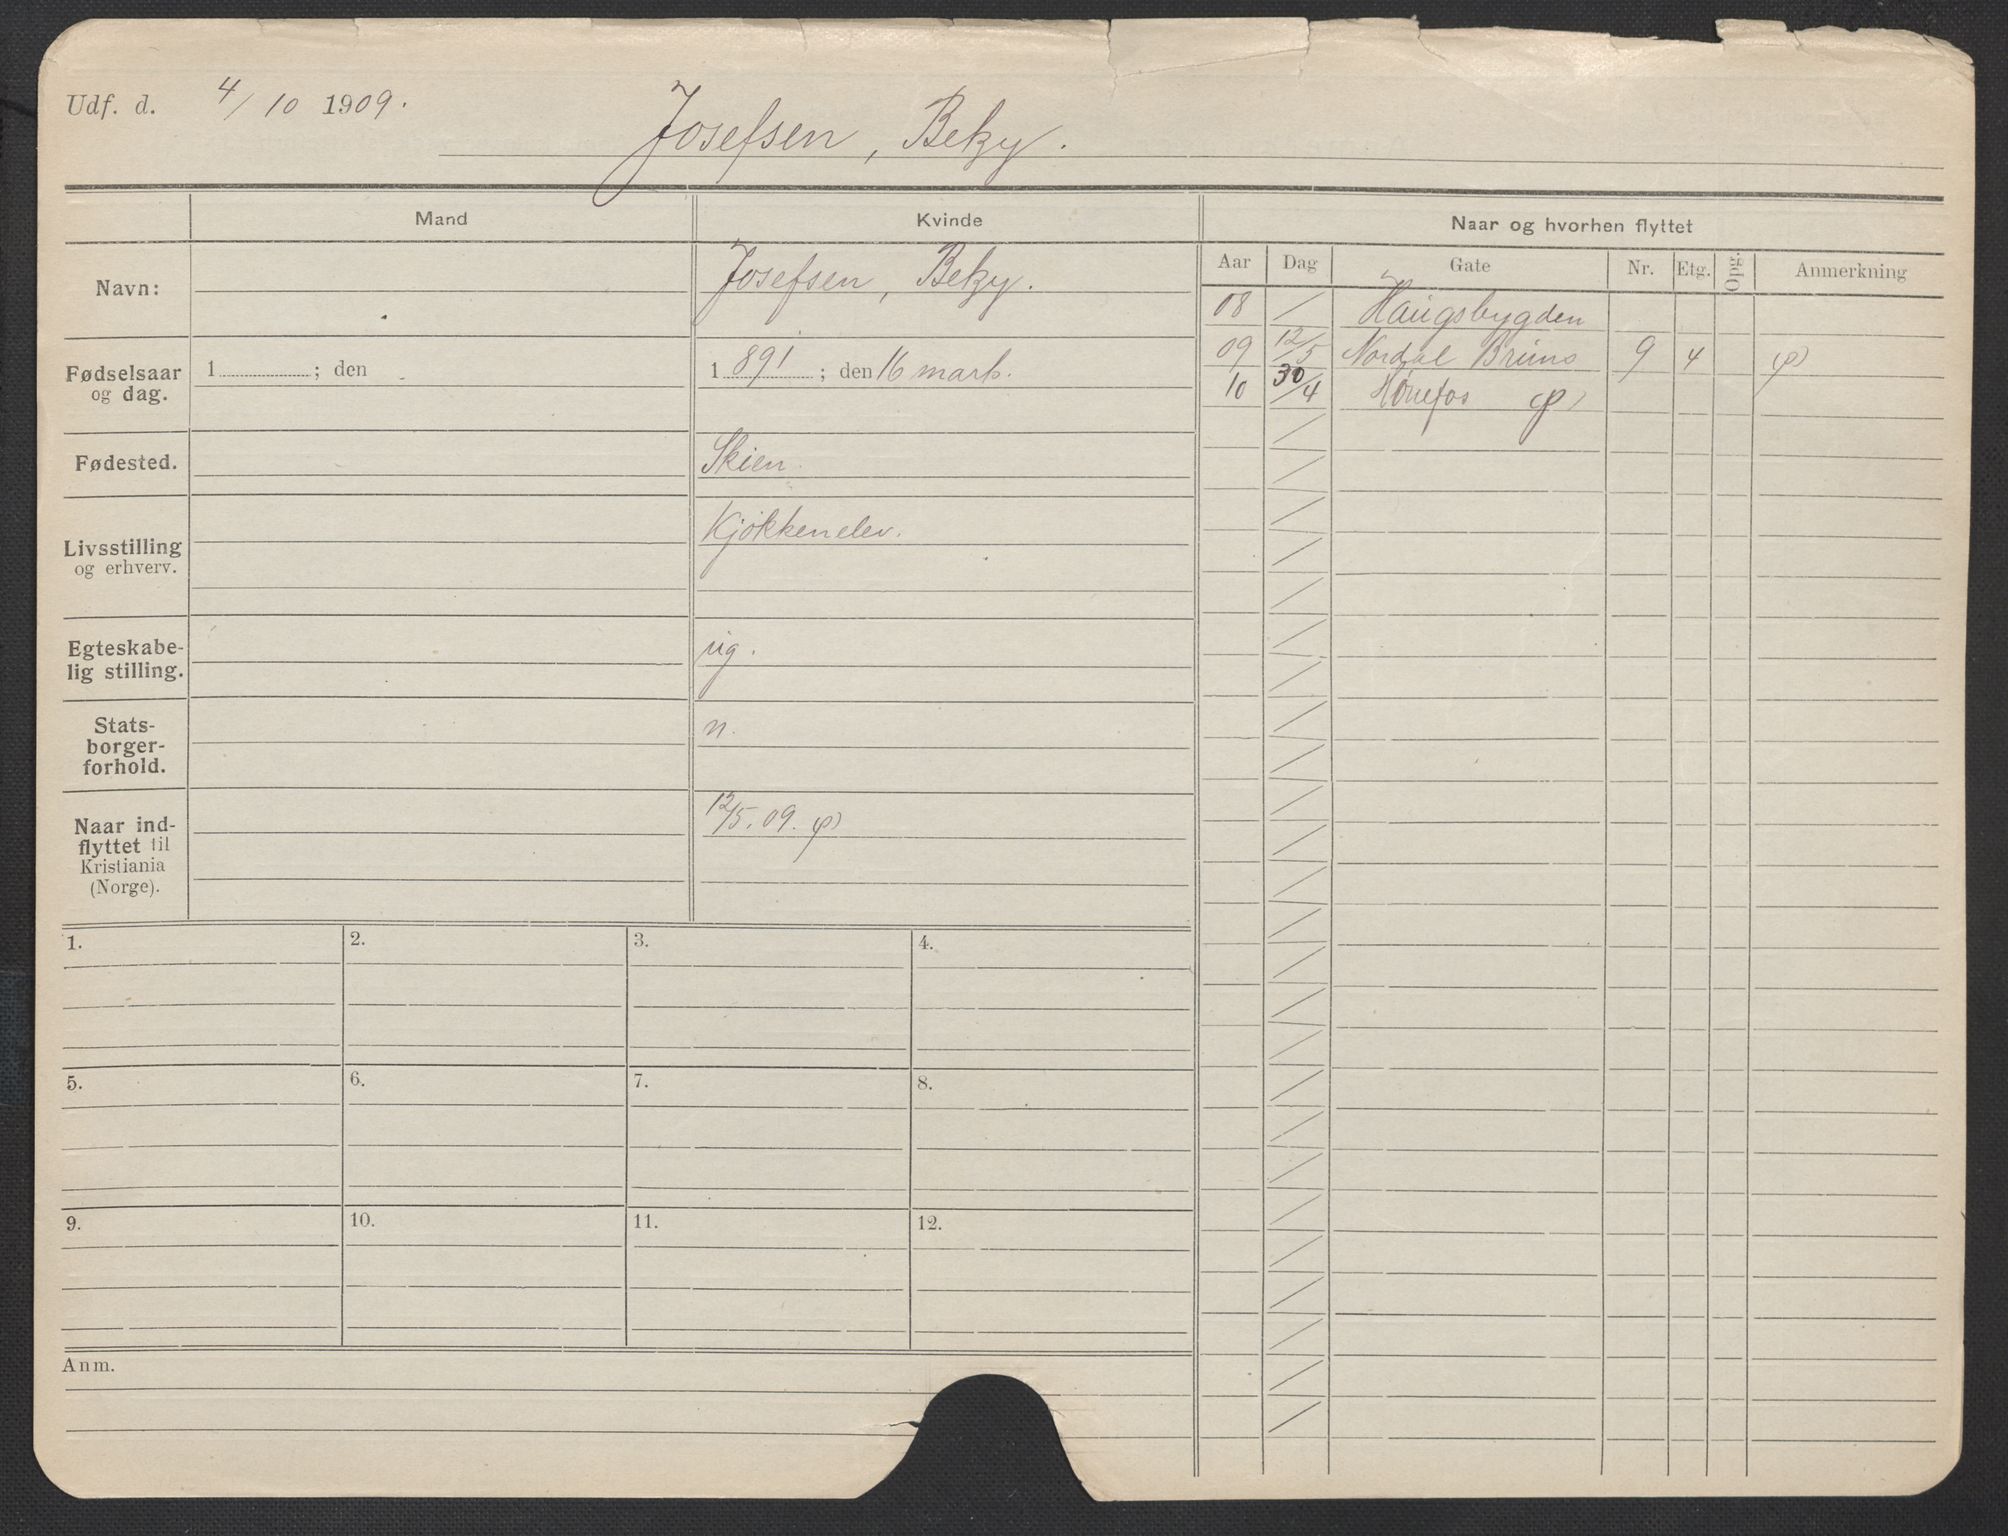 Udf. d. 4/10 1909.
Josefsen, Beky.
Mand Kvinde Naar og hvorhen flyttet
Aar Dag Gate Nr. Etg. Opg. Anmerkning
Navn: Josefsen, Beky.
Fødselsaar og dag. 1 ; den 1891 ; den 16 marts.
Fødested. Skien.
Livsstilling og erhverv. Kjøkkenelev.
Egteskabe-
lig stilling. ug.
Stats-
borger-
forhold. n.
Naar ind-
flyttet til
Kristiania
(Norge). 12/5. 09. φ)
08 / Haugsbygden
09 12/5 Nordal Bruns 9 4 φ)
10 30/4 Hønefos φ)
1. 2. 3. 4.
5. 6. 7. 8.
9. 10. 11. 12.
Anm.